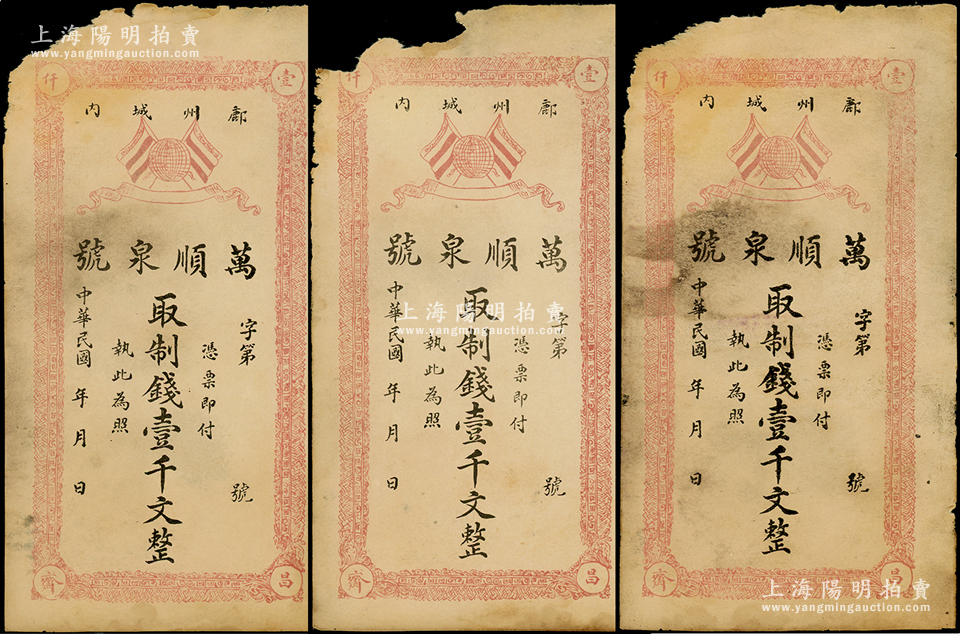 上海陽明拍賣
www.yangmingauction.com
壹仟
鄜州城內
萬順泉號
字第 號
憑票即付
取制錢壹千文整
執此為照
中華民國 年 月 日
昌齊
壹仟
鄜州城內
萬順泉號
字第 號
憑票即付
取制錢壹千文整
執此為照
中華民國 年 月 日
昌齊
上海陽明拍賣
www.yangmingauction.com
壹仟
鄜州城內
萬順泉號
字第 號
憑票即付
取制錢壹千文整
執此為照
中華民國 年 月 日
昌齊
上海陽明拍賣
www.yangmingauction.com